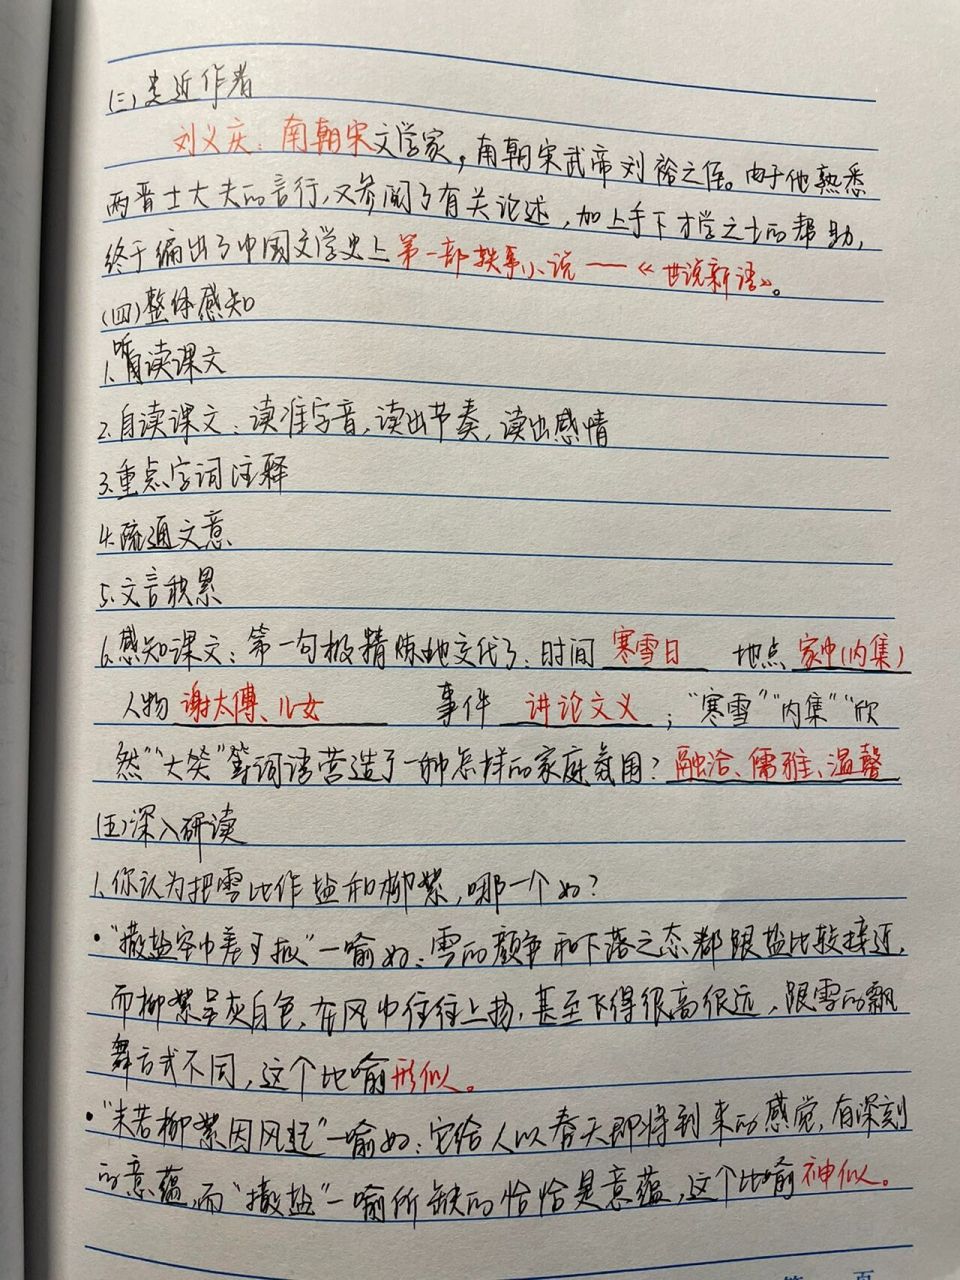 (三)走近作者
刘义庆:南朝宋文学家,南朝宋武帝刘裕之侄。由于他熟悉
两晋士大夫的言行,又参阅了有关论述,加上手下才学之士的帮助,
终于编出了中国文学史上第一部轶事小说——《世说新语》。
(四)整体感知
1.听读课文
2.自读课文:读准字音,读出节奏,读出感情
3.重点字词注释
4.疏通文意
5.文言积累
6.感知课文:第一句极精炼地交代了:时间 寒雪日 地点 家中(内集)
人物 谢太傅、儿女 事件 讲论文义 ;“寒雪”“内集”“欣
然”“大笑”等词语营造了一种怎样的家庭氛围? 融洽、儒雅、温馨
(五)深入研读
1.你认为把雪比作盐和柳絮,哪一个好?
·“撒盐空中差可拟”一喻好:雪的颜色和下落之态都跟盐比较接近,
而柳絮呈灰白色,在风中往往上扬,甚至飞得很高很远,跟雪的飘
舞方式不同,这个比喻形似。
·“未若柳絮因风起”一喻好:它给人以春天即将到来的感觉,有深刻
的意蕴,而“撒盐”一喻所缺的恰恰是意蕴,这个比喻神似。
第 页